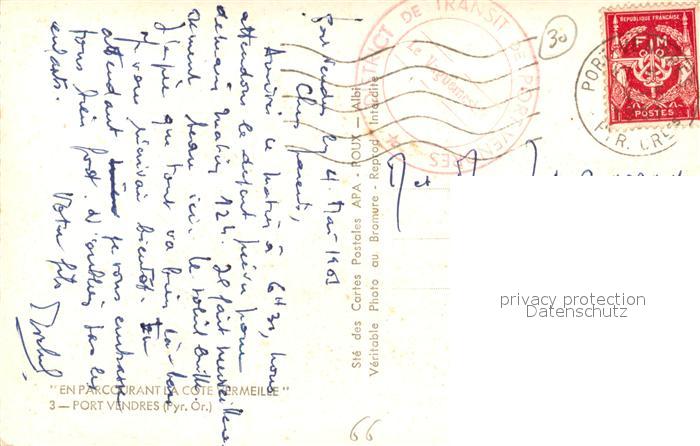 Port Vendres le 4 Mai 1961
Chers parents,
Arrivé ce matin à 6H30, nous
attendons le départ prévu pour
demain matin 12h. Il fait merveilleu-
sement beau ici. le soleil brille
J'espère que tout va bien là-bas
Je vous écrirai bientôt. En
attendant je vous embrasse
tous bien fort. N'oubliez pas les
enfants.
Votre fils
"EN PARCOURANT LA COTE VERMEILLE"
3 — PORT VENDRES (Pyr. Or.)
Sté des Cartes Postales APA - POUX - Albi
Véritable Photo au Bromure - Reprod Interdite
DISTRICT DE TRANSIT DE PORT-VENDRES
Le Vaguemestre
30
REPUBLIQUE FRANÇAISE
F M
POSTES
PORT
PYR. OR
M et
privacy protection
Datenschutz
66